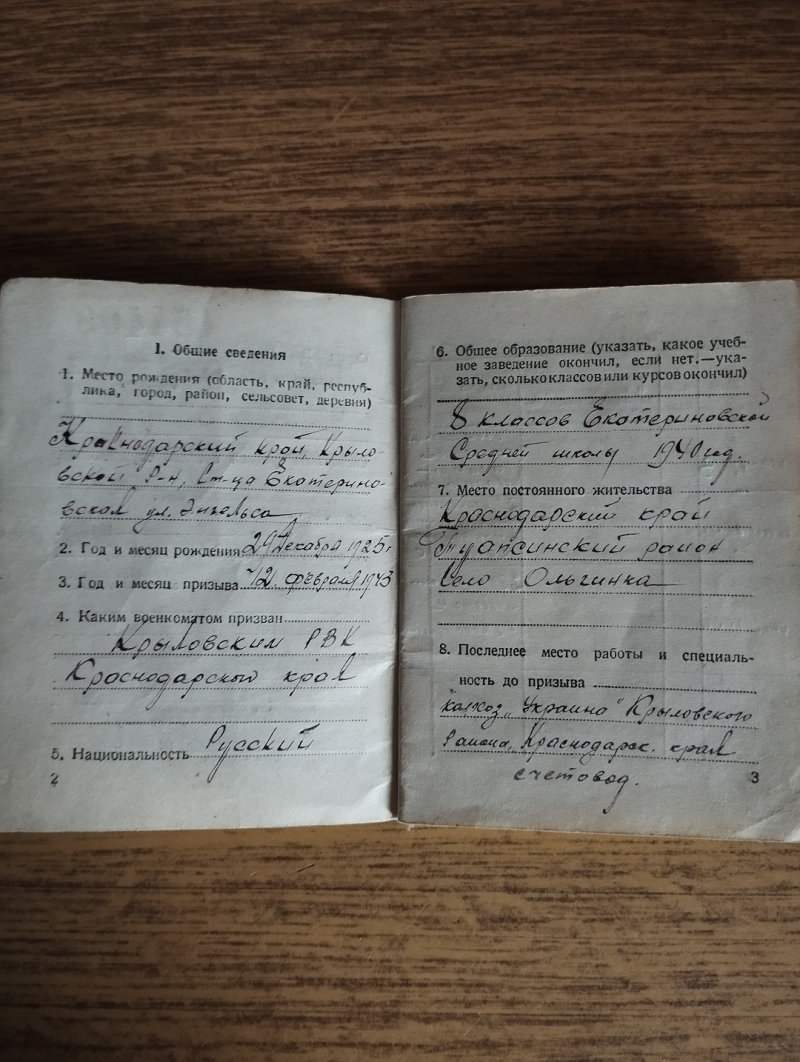 1. Общие сведения
1. Место рождения (область, край, респуб-
лика, город, район, сельсовет, деревня)
Краснодарский край, Крыло-
вской р-н, Ст-ца Екатерино-
вская ул. Энгельса
2. Год и месяц рождения 29 декабря 1925г
3. Год и месяц призыва 12 февраля 1943
4. Каким военкоматом призван
Крыловским РВК
Краснодарского края
5. Национальность Русский
2
6. Общее образование (указать, какое учеб-
ное заведение окончил, если нет.—ука-
зать, сколько классов или курсов окончил)
8 классов Екатериновской
Средней школы 1940 год.
7. Место постоянного жительства
Краснодарский край
Туапсинский район
село Ольгинка
8. Последнее место работы и специаль-
ность до призыва
колхоз „Украина" Крыловского
района, Краснодарск. края
счетовод.
3